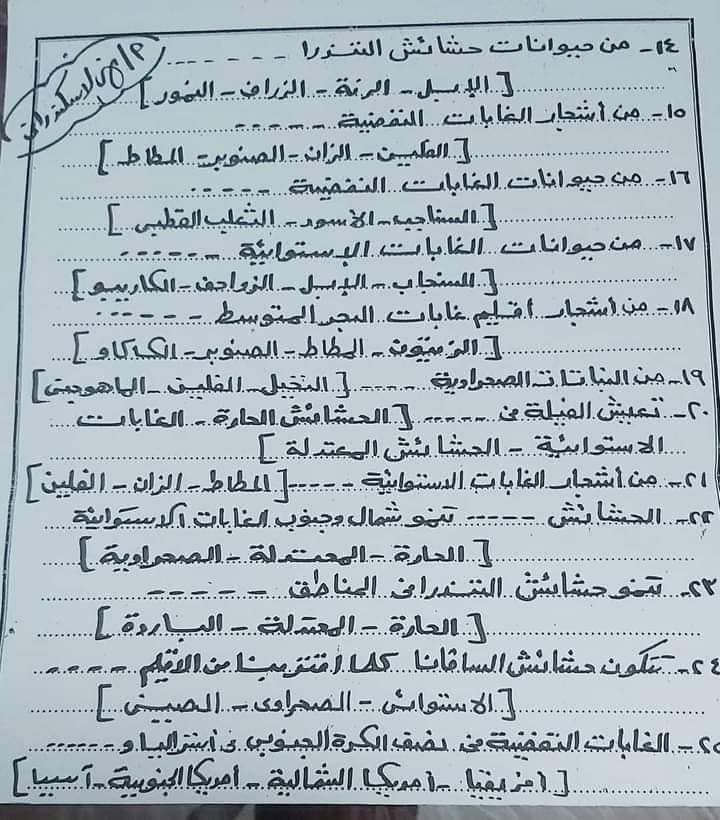 ١٤- من حيوانات حشائش التندرا -----
[ الإبل - الرنة - الزراف - النمور ]
١٥- من أشجار الغابات النفضية -----
[ الفلين - الزان - الصنوبر - المطاط ]
١٦- من حيوانات الغابات النفضية -----
[ السناجب - الأسود - الثعلب القطبى ]
١٧- من حيوانات الغابات الإستوائية -----
[ السنجاب - الإبل - الزواحف - الكاريبو ]
١٨- من أشجار أقليم غابات البحر المتوسط -----
[ الزيتون - المطاط - الصنوبر - الكاكاو ]
١٩- من النباتات الصحراوية ---- [ النخيل - الفلين - الماهوجنى ]
٢٠- تعيش الفيلة فى ----- [ الحشائش الحارة - الغابات
الاستوائية - الحشائش المعتدلة ]
٢١- من أشجار الغابات الاستوائية ----- [ المطاط - الزان - الفلين ]
٢٢- الحشائش ----- تنمو شمال وجنوب الغابات الاستوائية
[ الحارة - المعتدلة - الصحراوية ]
٢٣- تنمو حشائش التندرا فى المناطق -----
[ الحارة - المعتدلة - الباردة ]
٢٤- تتكون حشائش السافانا كلما اقتربنا من الأقليم ----
[ الاستوائى - الصحراوى - الصينى ]
٢٥- الغابات النفضية فى نصف الكرة الجنوبى فى أستراليا و -----
[ أفريقيا - أمريكا الشمالية - أمريكا الجنوبية - آسيا ]